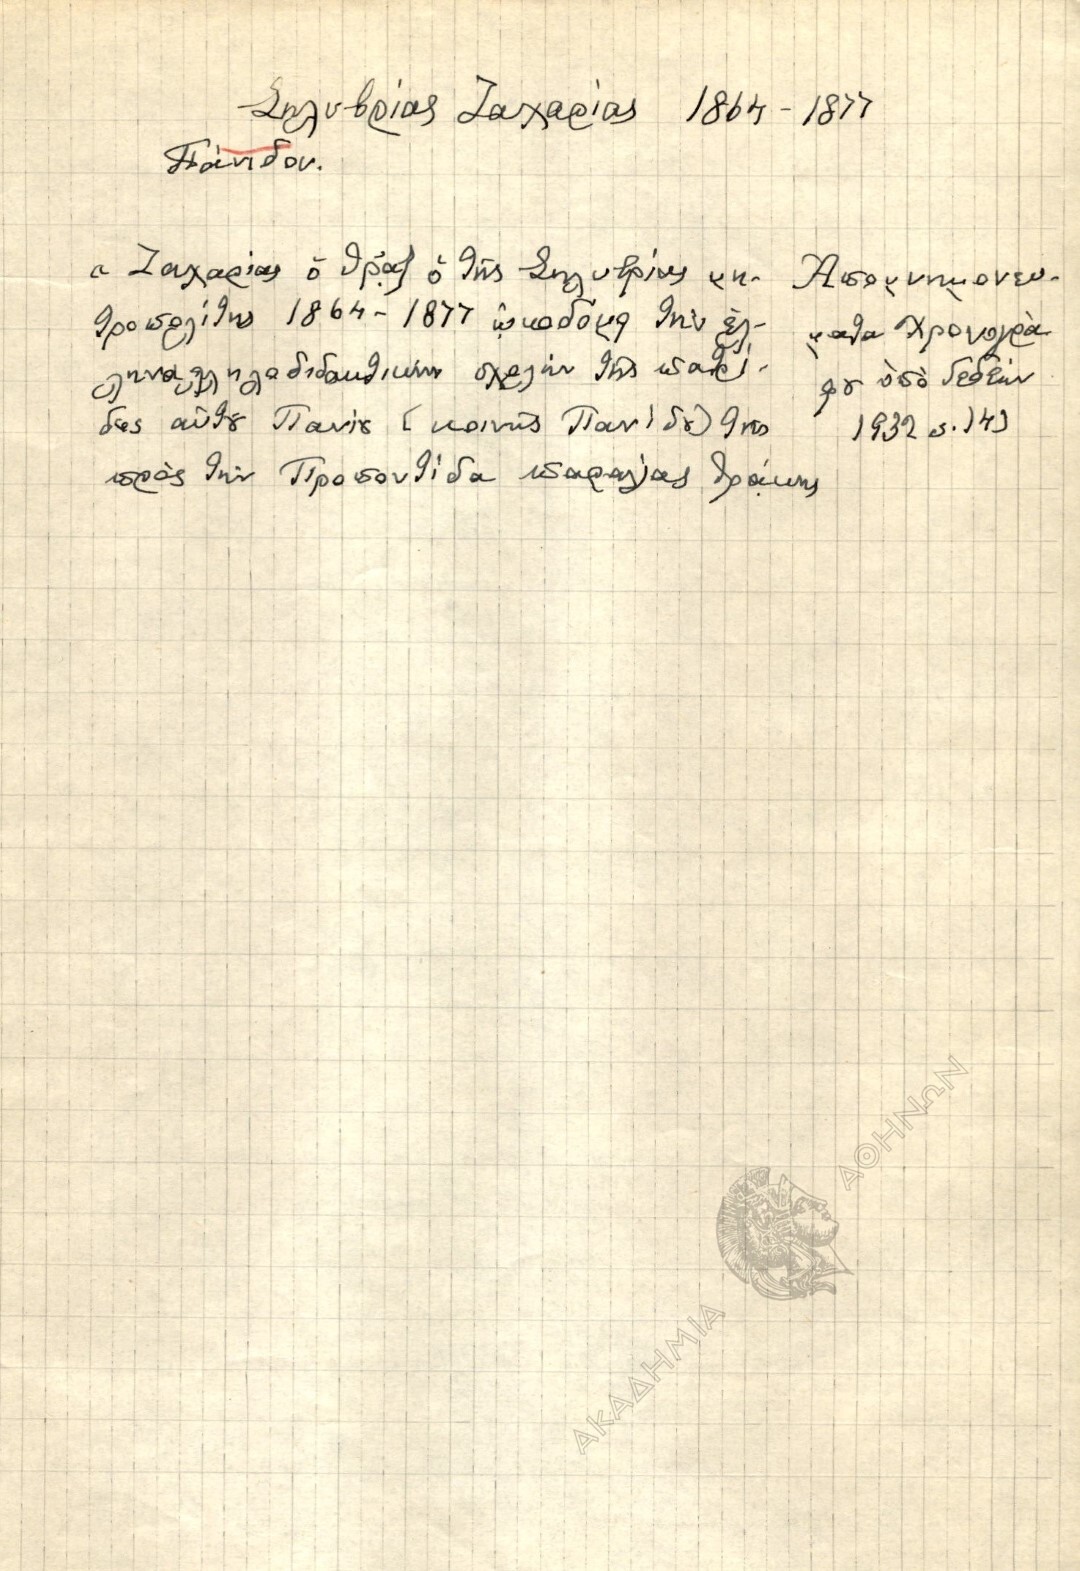 Σηλυβρίας Ζαχαρίας 1864-1877
Πάνιδον.
« Ζαχαρίας ὁ Θρᾷξ ὁ τῆς Σηλυβρίας μη-
τροπολίτης 1864-1877 ᾠκοδόμησε τὴν ἑλ-
ληνοαλληλοδιδακτικὴν σχολὴν τῆς πατρί-
δος αὐτοῦ Πανίου (κοινῶς Πανίδου) τῆς
πρὸς τὴν Προποντίδα παραλίας Θράκης
Ἀπομνημονεύ-
ματα Χρονογρά
φου ὑπὸ
1932 σ. 143
ΑΚΑΔΗΜΙΑ ΑΘΗΝΩΝ